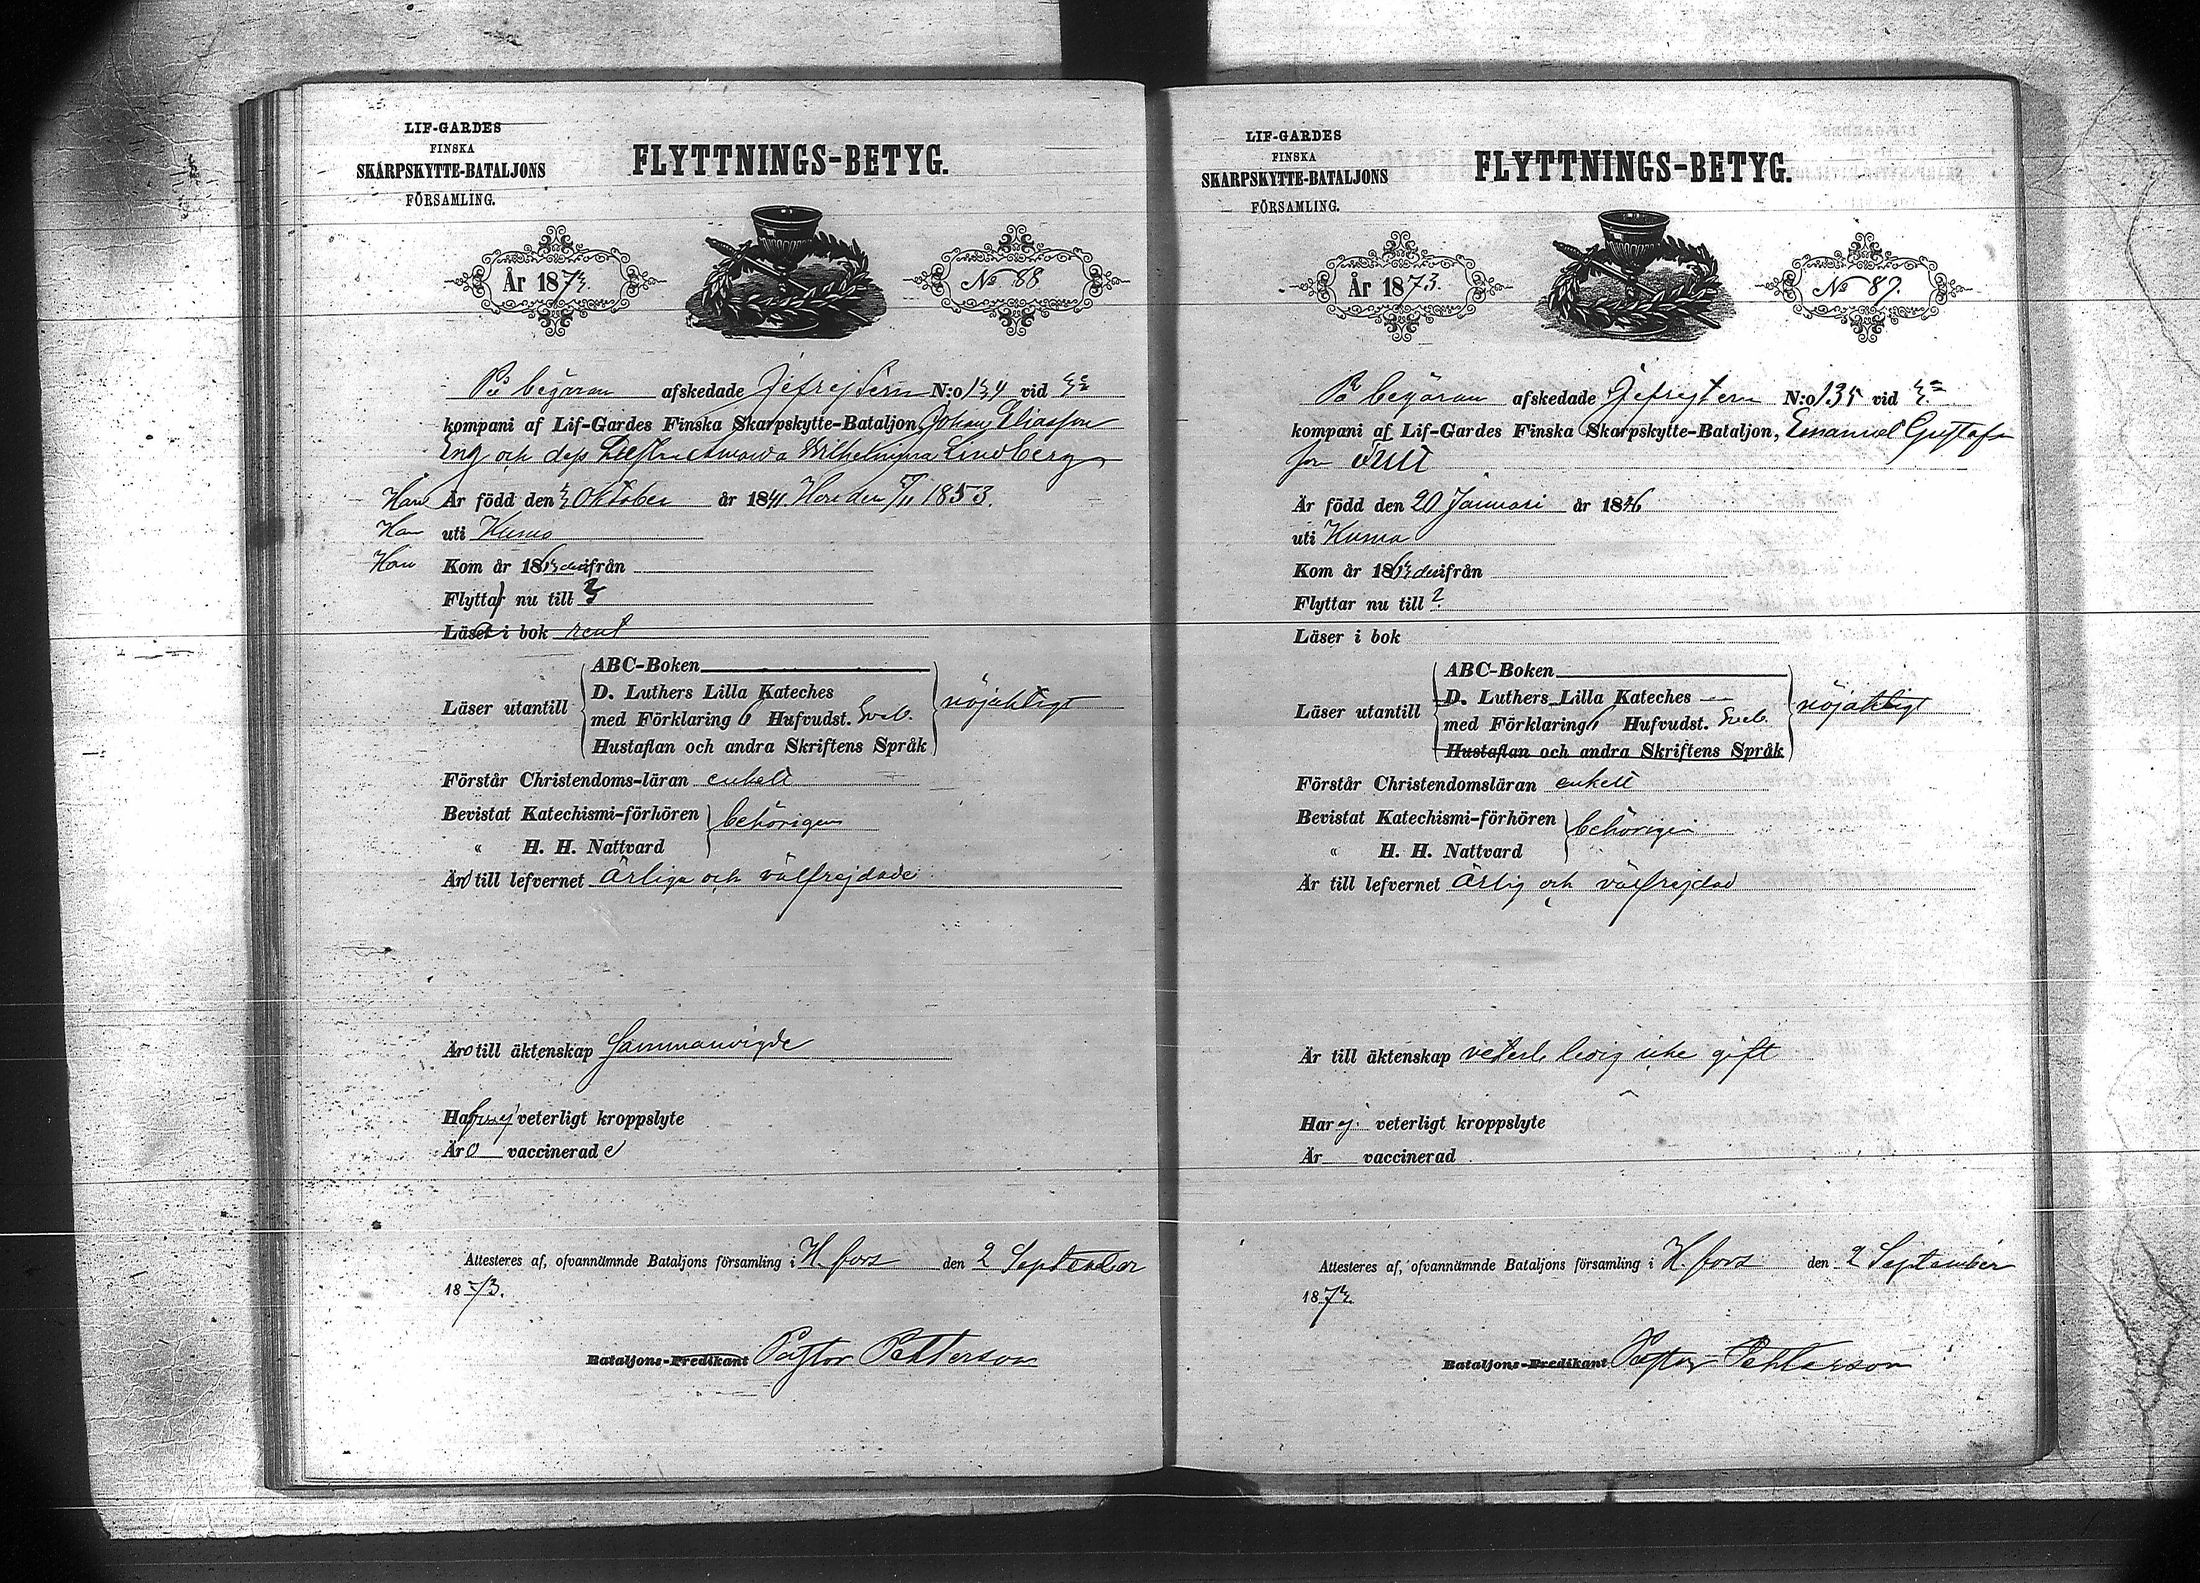 LIF-GARDES
FINSKA
SKARPSKYTTE-BATALJONS
FÖRSAMLING.
FLYTTNINGS-BETYG.
År 1873.
No 88
På begäran afskedade Gefrejdern N:o 134 vid 3e
kompani af Lif-Gardes Finska Skarpskytte-Bataljon, Johan Eliasson
Eng och dess Hustru Wilhelmina Lindberg
Han Är född den 3 Oktober år 1841. Hon den 1853.
Han uti Kumo
Han Kom år 1863 från
Flytta nu till ?
Läsa i bok rent
ABC-Boken
Läser utantill
D. Luthers Lilla Kateches
med Förklaring 6 Hufvudst. Sveb.
Hustaflan och andra Skriftens Språk
nöjaktigt
Förstår Christendoms-läran enkelt
Bevistat Katechismi-förhören
" H. H. Nattvard
behörigen
Äro till lefvernet ärliga och välfrejdade
Äro till äktenskap Sammanvigde
Hafva ej veterligt kroppslyte
Äro vaccinerade
Attesteres af, ofvannämnde Bataljons församling i H.fors den 2 September
1873.
Bataljons-Predikant Pastor Pettersson
LIF-GARDES
FINSKA
SKARPSKYTTE-BATALJONS
FÖRSAMLING.
FLYTTNINGS-BETYG.
År 1873.
No 89.
På begäran afskedade Gefrejtern N:o 135 vid 3e
kompani af Lif-Gardes Finska Skarpskytte-Bataljon, Emanuel Gustafs
son
Är född den 20 Januari år 1846
uti Kumo
Kom år 1863 från
Flyttar nu till ?
Läser i bok
ABC-Boken
Läser utantill
D. Luthers Lilla Kateches
med Förklaring 6 Hufvudst. Sveb.
Hustaflan och andra Skriftens Språk
nöjaktigt
Förstår Christendomsläran enkelt
Bevistat Katechismi-förhören
" H. H. Nattvard
behörigen
Är till lefvernet ärlig och välfrejdad
Är till äktenskap veterl. ledig icke gift
Har ej veterligt kroppslyte
Är vaccinerad
Attesteres af, ofvannämnde Bataljons församling i H.fors den 2 September
1873.
Bataljons-Predikant Pastor Pettersson